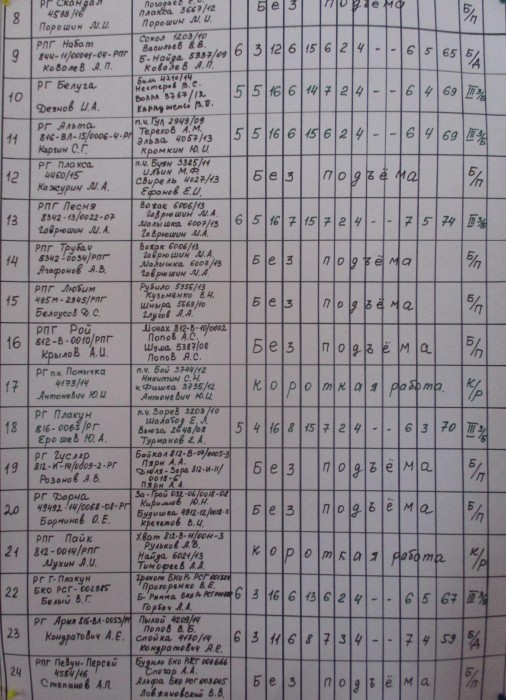 8 РГ Скандал 4588/16 Порошин М.И. Плакса 3667/12 Порошин М.И. Без подъёма Б/П
9 РПГ Набат 844-11/00041-04-РПГ Ковалев А.П. Сокол 1203/10 Васильев В.В. Б-Найда 5337/09 Ковалев А.П. 6 3 12 6 15 6 2 4 - - 6 5 65 Б/Д
10 РГ Белуга Дезнов И.А. Бим 4210/14 Нестеров В.С. Волна 3767/12 5 5 16 6 14 7 2 4 - - 6 4 69 III 3/Б
11 РГ Альта 816-ВЛ-15/0006-4-РГ Каргин С.Г. п.ч. Гул 2949/09 Терехов А.М. Эльза 4057/13 Кромкин Ю.И. 5 5 16 6 15 6 2 4 - - 6 4 69 III 3/Б
12 РГ Плакса 4460/15 Кажурин М.А. п.ч. Буян 3385/11 Ильин М.Ф. Свирель 4027/13 Ефанов Е.И. Без подъёма Б/П
13 РПГ Песня 8342-13/0022-07 Гаврюшин М.А. Вожак 6006/13 Гаврюшин М.А. Малышка 6007/13 Гаврюшин М.А. 6 5 16 7 15 7 2 4 - - 7 5 74 III 3/Б
14 РПГ Трубач 8342-0034/РПГ Агафонов А.В. Вожак 6006/13 Гаврюшин М.А. Малышка 6007/13 Гаврюшин М.А Без подъёма Б/П
15 РПГ Любим 495М-2345/РПГ Белоусов Д.С. Рубило 5356/13 Кузьменко В.Н. Шныра 5669/10 Глухов А.А. Без подъёма Б/П
16 РПГ Рой 812-В-0010/РПГ Крылов А.И. Монах 812-В-10/0002 Попов А.С. Шума 5387/08 Попов А.С. Без подъёма Б/П
17 РГ п.ч. Помычка 4173/14 Антоневич Ю.И. п.ч. Бой 3744/12 Никитин С.Н. ч. Фишка 3735/12 Антоневич Ю.И. короткая работа. К/Р
18 РГ Плакун 816-0065/РГ Ерошев Ю.А. п.ч. Зорев 3203/10 Шалабод Е.Л. Вьюга 2648/08 Турманов Е.А. 5 4 16 8 15 7 2 4 - - 6 3 70 III 3/Б
19 РГ Гусляр 812-И-14/0009-2-РГ Розанов А.В. Байкал 812-В-09/0005-3 Пярн А.А. 0018-6 Пярн А.А. Без подъёма Б/П
20 РГ Дарча 49492-14/0068-08-РГ Барминов О.Е. За-Грай 092-06/0018-08 Кирилков Ю.Н. Будишка Кречетов В.И. Без подъёма Б/П
21 РПГ Пайк 812-0014/РПГ Мухин А.И. Хват 812-В-11/0014-3 Рульков А.В. Найда 6021/13 Тимофеев А.А. короткая работа К/Р
22 РГ Г-Плакун БКО РСГ-002985 Белый В.Г. Грохот БКО Р РСГ Прохоренко В.Е. Горбач А.А. 6 3 16 6 13 6 2 4 - - 6 5 67 III 3/Б
23 РГ Ария 816-ВЛ-0053/РГ Кондратович А.Е. Пылай 4209/14 Попов В.Б. Слойка 4170/14 Кондратович А.Е. 6 3 11 6 8 7 3 4 - - 7 4 59 Б/Д
24 РПГ Певун-Персей 4584/16 Степанов А.П. Будило БКО РСГ 003666 Спогар А.А. Альфа БКО РСГ Ловжановский В.В. Без подъёма Б/П